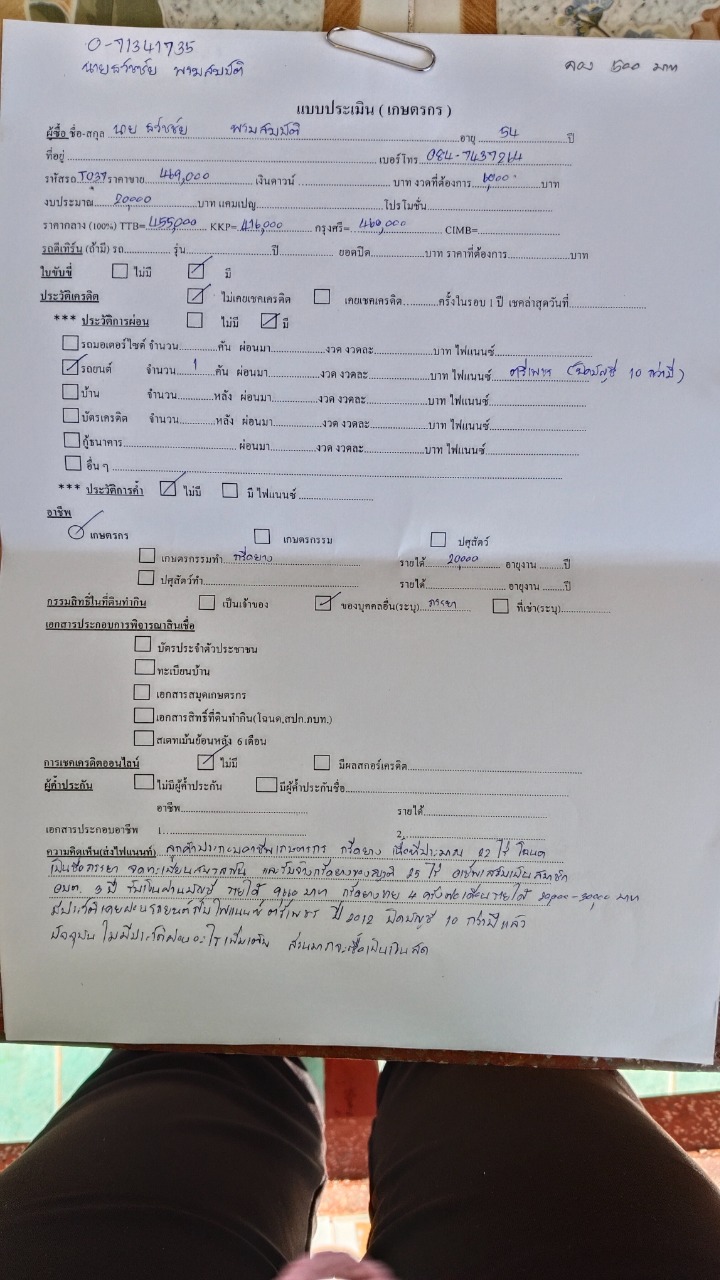 0-71341735
นายธวัชชัย พามสมบัติ
จอง 500 บาท
แบบประเมิน ( เกษตรกร )
ผู้ซื้อ ชื่อ-สกุล นาย ธวัชชัย พามสมบัติ อายุ 54 ปี
ที่อยู่ เบอร์โทร 084-7437214
รหัสรถ T037 ราคาขาย 469,000 เงินดาวน์ บาท งวดที่ต้องการ บาท
งบประมาณ 20,000 บาท แคมเปญ โปรโมชั่น
ราคากลาง (100%) TTB= 455,000 KKP= 416,000 กรุงศรี= 460,000 CIMB=
รถตีเทิร์น (ถ้ามี) รถ รุ่น ปี ยอดปิด บาท ราคาที่ต้องการ บาท
ใบขับขี่ ไม่มี มี
ประวัติเครดิต ไม่เคยเชคเครดิต เคยเชคเครดิต ครั้งในรอบ 1 ปี เชคล่าสุดวันที่
*** ประวัติการผ่อน ไม่มี มี
รถมอเตอร์ไซค์ จำนวน คัน ผ่อนมา งวด งวดละ บาท ไฟแนนซ์
รถยนต์ จำนวน 1 คัน ผ่อนมา งวด งวดละ บาท ไฟแนนซ์ ตรีเพชร (ปิดบัญชี 10 กว่าปี)
บ้าน จำนวน หลัง ผ่อนมา งวด งวดละ บาท ไฟแนนซ์
บัตรเครดิต จำนวน หลัง ผ่อนมา งวด งวดละ บาท ไฟแนนซ์
กู้ธนาคาร ผ่อนมา งวด งวดละ บาท ไฟแนนซ์
อื่น ๆ
*** ประวัติการค้ำ ไม่มี มี ไฟแนนซ์
อาชีพ
เกษตรกร เกษตรกรรม ปศุสัตว์
เกษตรกรรมทำ กรีดยาง รายได้ 20,000 อายุงาน ปี
ปศุสัตว์ทำ รายได้ อายุงาน ปี
กรรมสิทธิ์ในที่ดินทำกิน เป็นเจ้าของ ของบุคคลอื่น(ระบุ) ภรรยา ที่เช่า(ระบุ)
เอกสารประกอบการพิจารณาสินเชื่อ
บัตรประจำตัวประชาชน
ทะเบียนบ้าน
เอกสารสมุดเกษตรกร
เอกสารสิทธิ์ที่ดินทำกิน(โฉนด,สปก.ภบท.)
สเตทเม้นย้อนหลัง 6 เดือน
การเชคเครดิตออนไลน์ ไม่มี มีผลสกอร์เครดิต
ผู้ค้ำประกัน ไม่มีผู้ค้ำประกัน มีผู้ค้ำประกันชื่อ
อาชีพ รายได้
เอกสารประกอบอาชีพ 1. 2.
ความคิดเห็น(ส่งไฟแนนท์) ลูกค้าประกอบอาชีพเกษตรกร กรีดยาง เนื้อที่ประมาณ 22 ไร่ โฉนด
เป็นชื่อภรรยา จดทะเบียนสมรสกัน และรับจ้างกรีดยางของญาติ 25 ไร่ อาชีพเสริมเป็นสมาชิก
อบต. 3 ปี รับเงินผ่านบัญชี รายได้ บาท กรีดยางขาย 4 ครั้งต่อเดือน รายได้ 20,000-30,000 บาท
มีประวัติเคยผ่อนรถยนต์กับไฟแนนซ์ ตรีเพชร ปี 2012 ปิดบัญชี 10 กว่าปีแล้ว
ปัจจุบัน ไม่มีประวัติผ่อนอะไรเพิ่มเติม ส่วนมากจะซื้อเป็นเงินสด